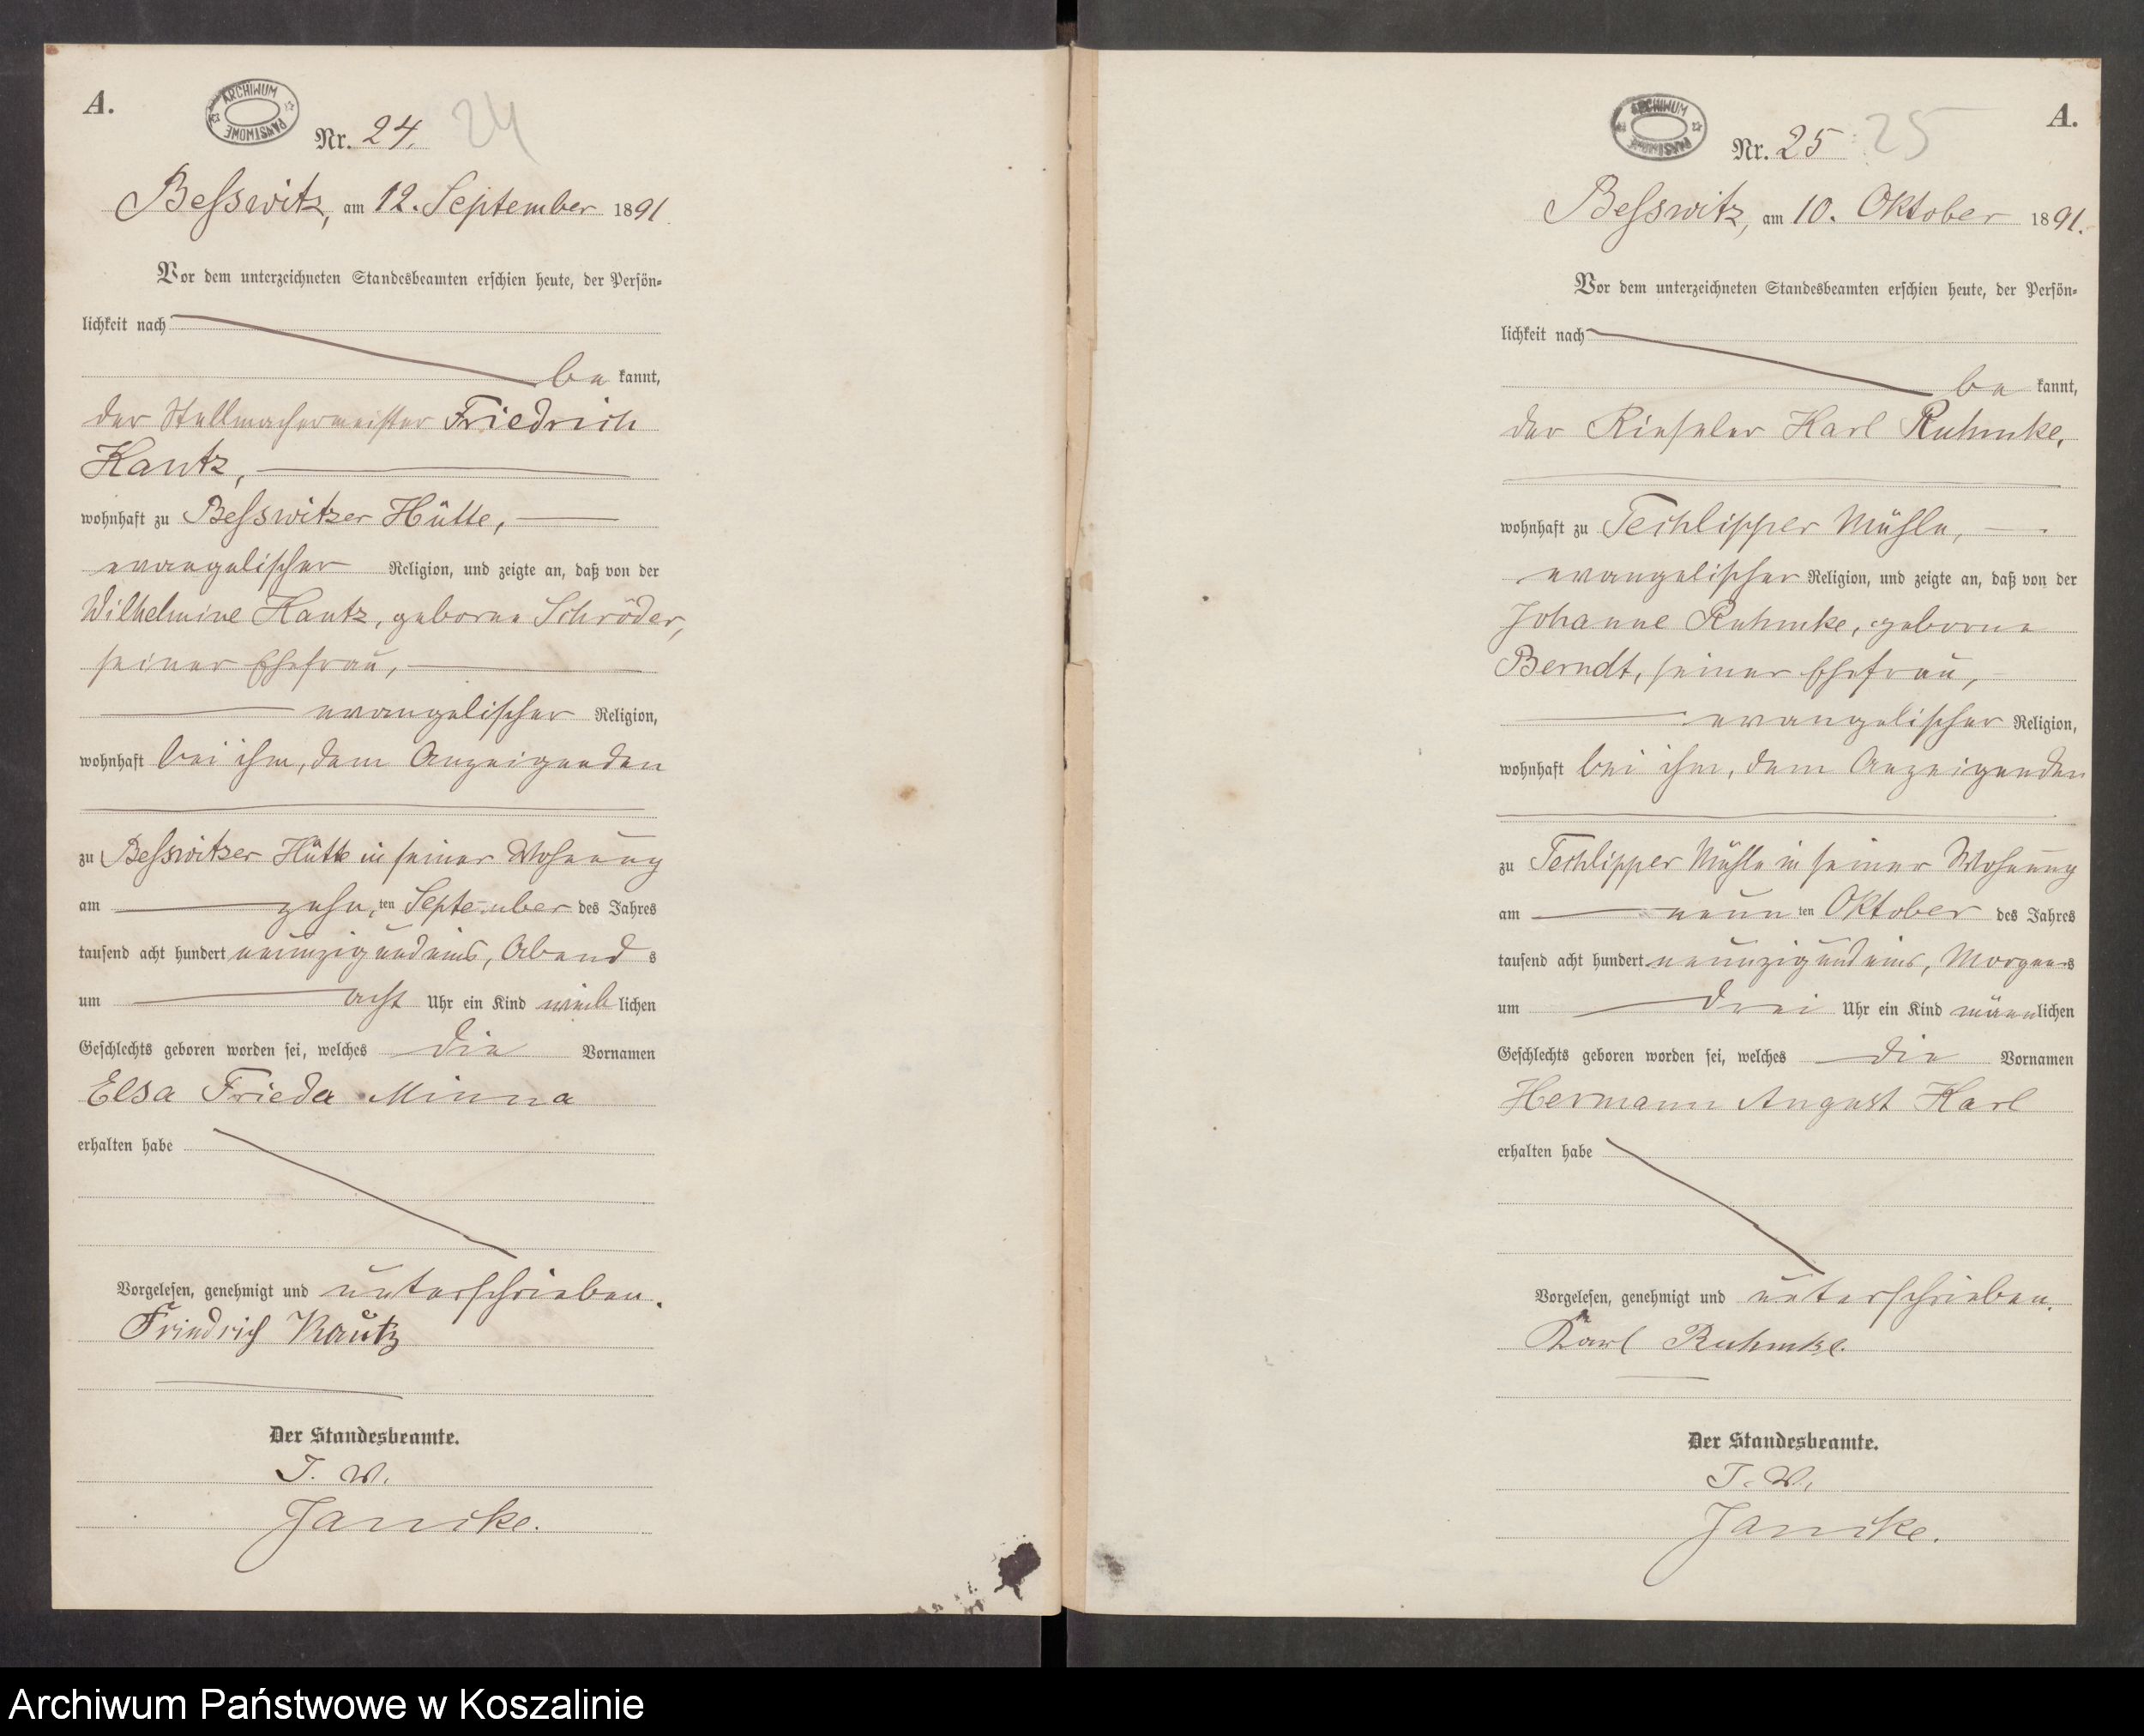 A.
ARCHIWUM PAŃSTWOWE
Nr. 24. 24
Beſswitz, am 12. September 1891.
Vor dem unterzeichneten Standesbeamten erſchien heute, der Perſön-
lichkeit nach
be kannt,
der Stellmachermeiſter Friedrich
Kautz,
wohnhaft zu Beſswitzer Hütte,
evangeliſcher Religion, und zeigte an, daß von der
Wilhelmine Kautz, geborne Schröder,
ſeiner Ehefrau,
evangeliſcher Religion,
wohnhaft bei ihm, dem Anzeigenden
zu Beſswitzer Hütte in ſeiner Wohnung
am zehn ten September des Jahres
tauſend acht hundert neunzig und eins, Abend s
um acht Uhr ein Kind weib lichen
Geſchlechts geboren worden ſei, welches die Vornamen
Elsa Frieda Minna
erhalten habe
Vorgeleſen, genehmigt und unterſchrieben.
Friedrich Kautz
Der Standesbeamte.
J. V.
Jancke.
A.
ARCHIWUM PAŃSTWOWE
Nr. 25 25
Beſswitz, am 10. Oktober 1891.
Vor dem unterzeichneten Standesbeamten erſchien heute, der Perſön-
lichkeit nach
be kannt,
der Rieſeler Karl Ruhmke,
wohnhaft zu Techlipper Mühle,
evangeliſcher Religion, und zeigte an, daß von der
Johanne Ruhmke, geborne
Berndt, ſeiner Ehefrau,
evangeliſcher Religion,
wohnhaft bei ihm, dem Anzeigenden
zu Techlipper Mühle in ſeiner Wohnung
am neun ten Oktober des Jahres
tauſend acht hundert neunzig und eins, Morgens
um drei Uhr ein Kind männlichen
Geſchlechts geboren worden ſei, welches die Vornamen
Hermann August Karl
erhalten habe
Vorgeleſen, genehmigt und unterſchrieben.
Karl Ruhmke.
Der Standesbeamte.
J. V.
Jancke.
Archiwum Państwowe w Koszalinie